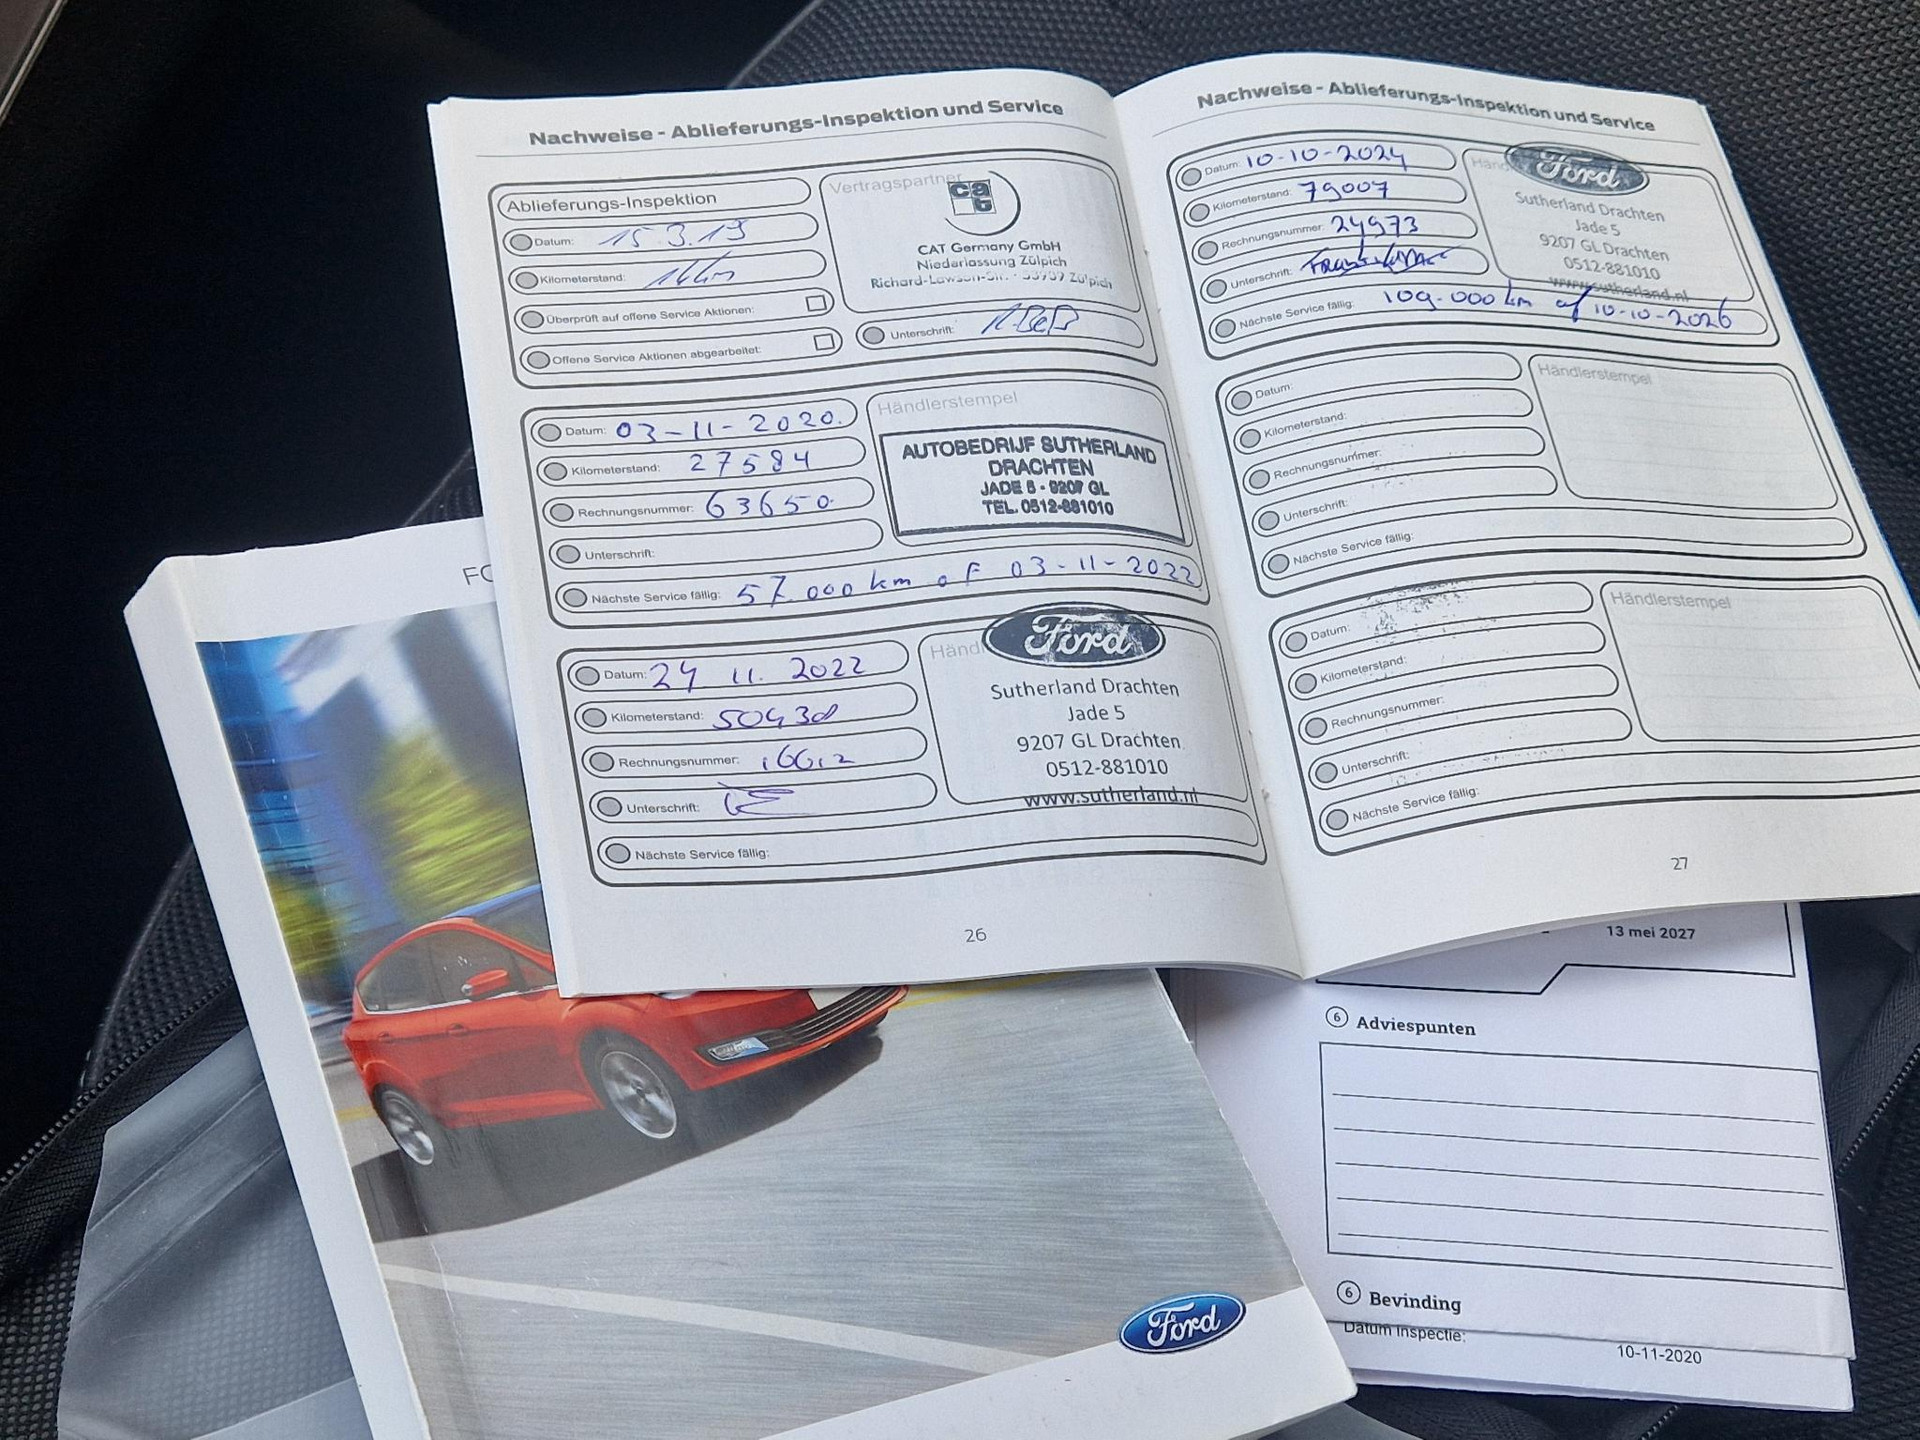 Nachweise - Ablieferungs-Inspektion und Service
Ablieferungs-Inspektion
Datum: 15.3.19
Kilometerstand: 14 km
Überprüft auf offene Service Aktionen:
Offene Service Aktionen abgearbeitet:
Vertragspartner
cat
CAT Germany GmbH
Niederlassung Zülpich
Zülpich
Unterschrift:
Datum: 03-11-2020.
Kilometerstand: 27584
Rechnungsnummer: 63650.
Unterschrift:
Nächste Service fällig: 57.000 km of 03-11-2022
Händlerstempel
AUTOBEDRIJF SUTHERLAND
DRACHTEN
JADE 5 - 9207 GL
TEL. 0512-881010
Datum: 24 11. 2022
Kilometerstand:
Rechnungsnummer:
Unterschrift:
Nächste Service fällig:
Händl
Ford
Sutherland Drachten
Jade 5
9207 GL Drachten
0512-881010
www.sutherland.nl
26
Nachweise - Ablieferungs-Inspektion und Service
Datum: 10-10-2024
Kilometerstand: 79007
Rechnungsnummer: 24973
Unterschrift:
Nächste Service fällig: 109.000 km of 10-10-2026
Händ
Ford
Sutherland Drachten
Jade 5
9207 GL Drachten
0512-881010
www.sutherland.nl
Datum:
Kilometerstand:
Rechnungsnummer:
Unterschrift:
Nächste Service fällig:
Händlerstempel
Datum:
Kilometerstand:
Rechnungsnummer:
Unterschrift:
Nächste Service fällig:
Händlerstempel
27
FO
Ford
13 mei 2027
6 Adviespunten
6 Bevinding
Datum inspectie:
10-11-2020